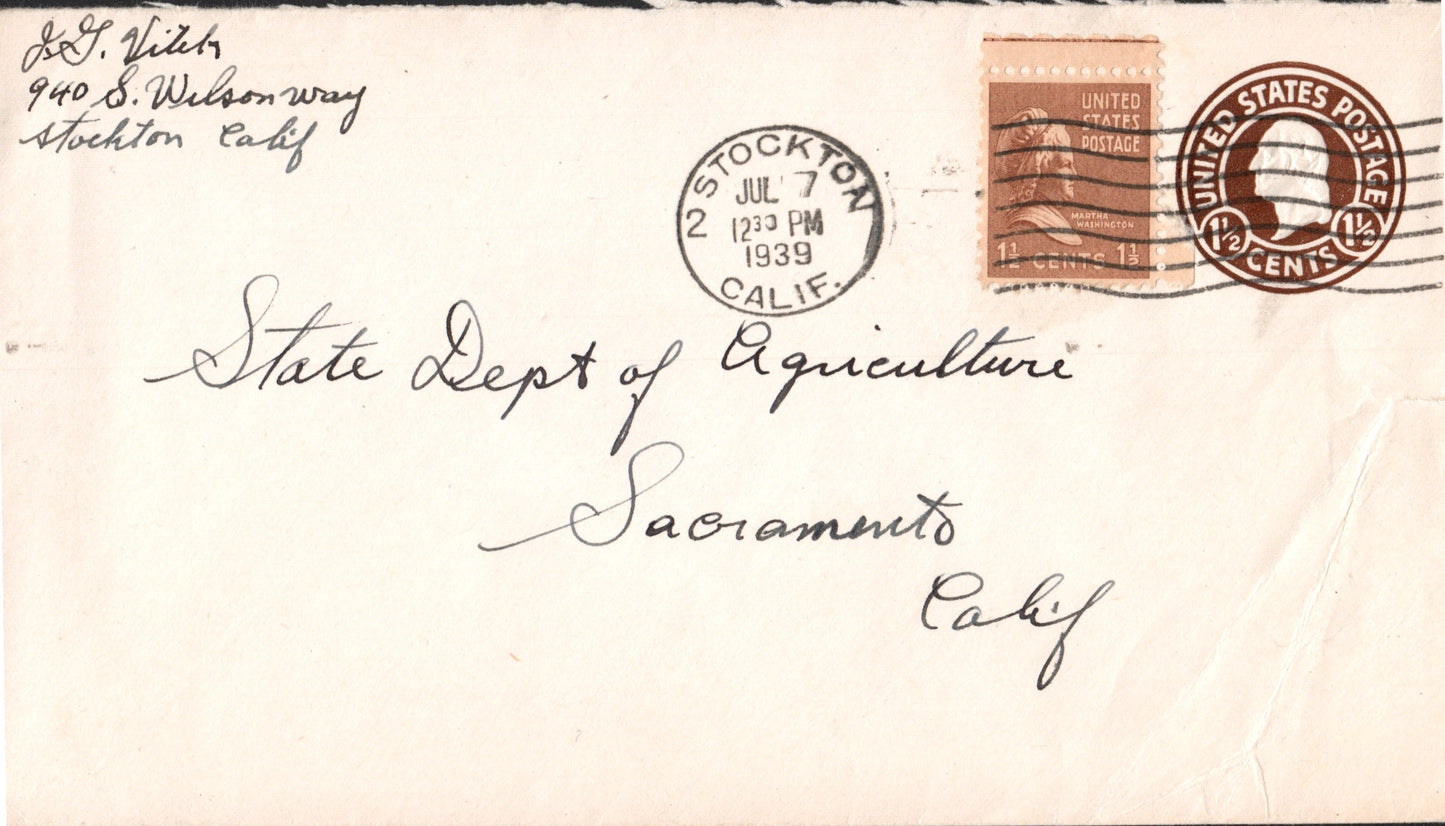 J. G.
940 S. Wilson way
Stockton Calif
2 STOCKTON
JUL 7
12 30 PM
1939
CALIF.
UNITED
STATES
POSTAGE
MARTHA
WASHINGTON
1 1/2 CENTS 1 1/2
UNITED STATES POSTAGE
1 1/2 CENTS 1 1/2
State Dept of Agriculture
Sacramento
Calif